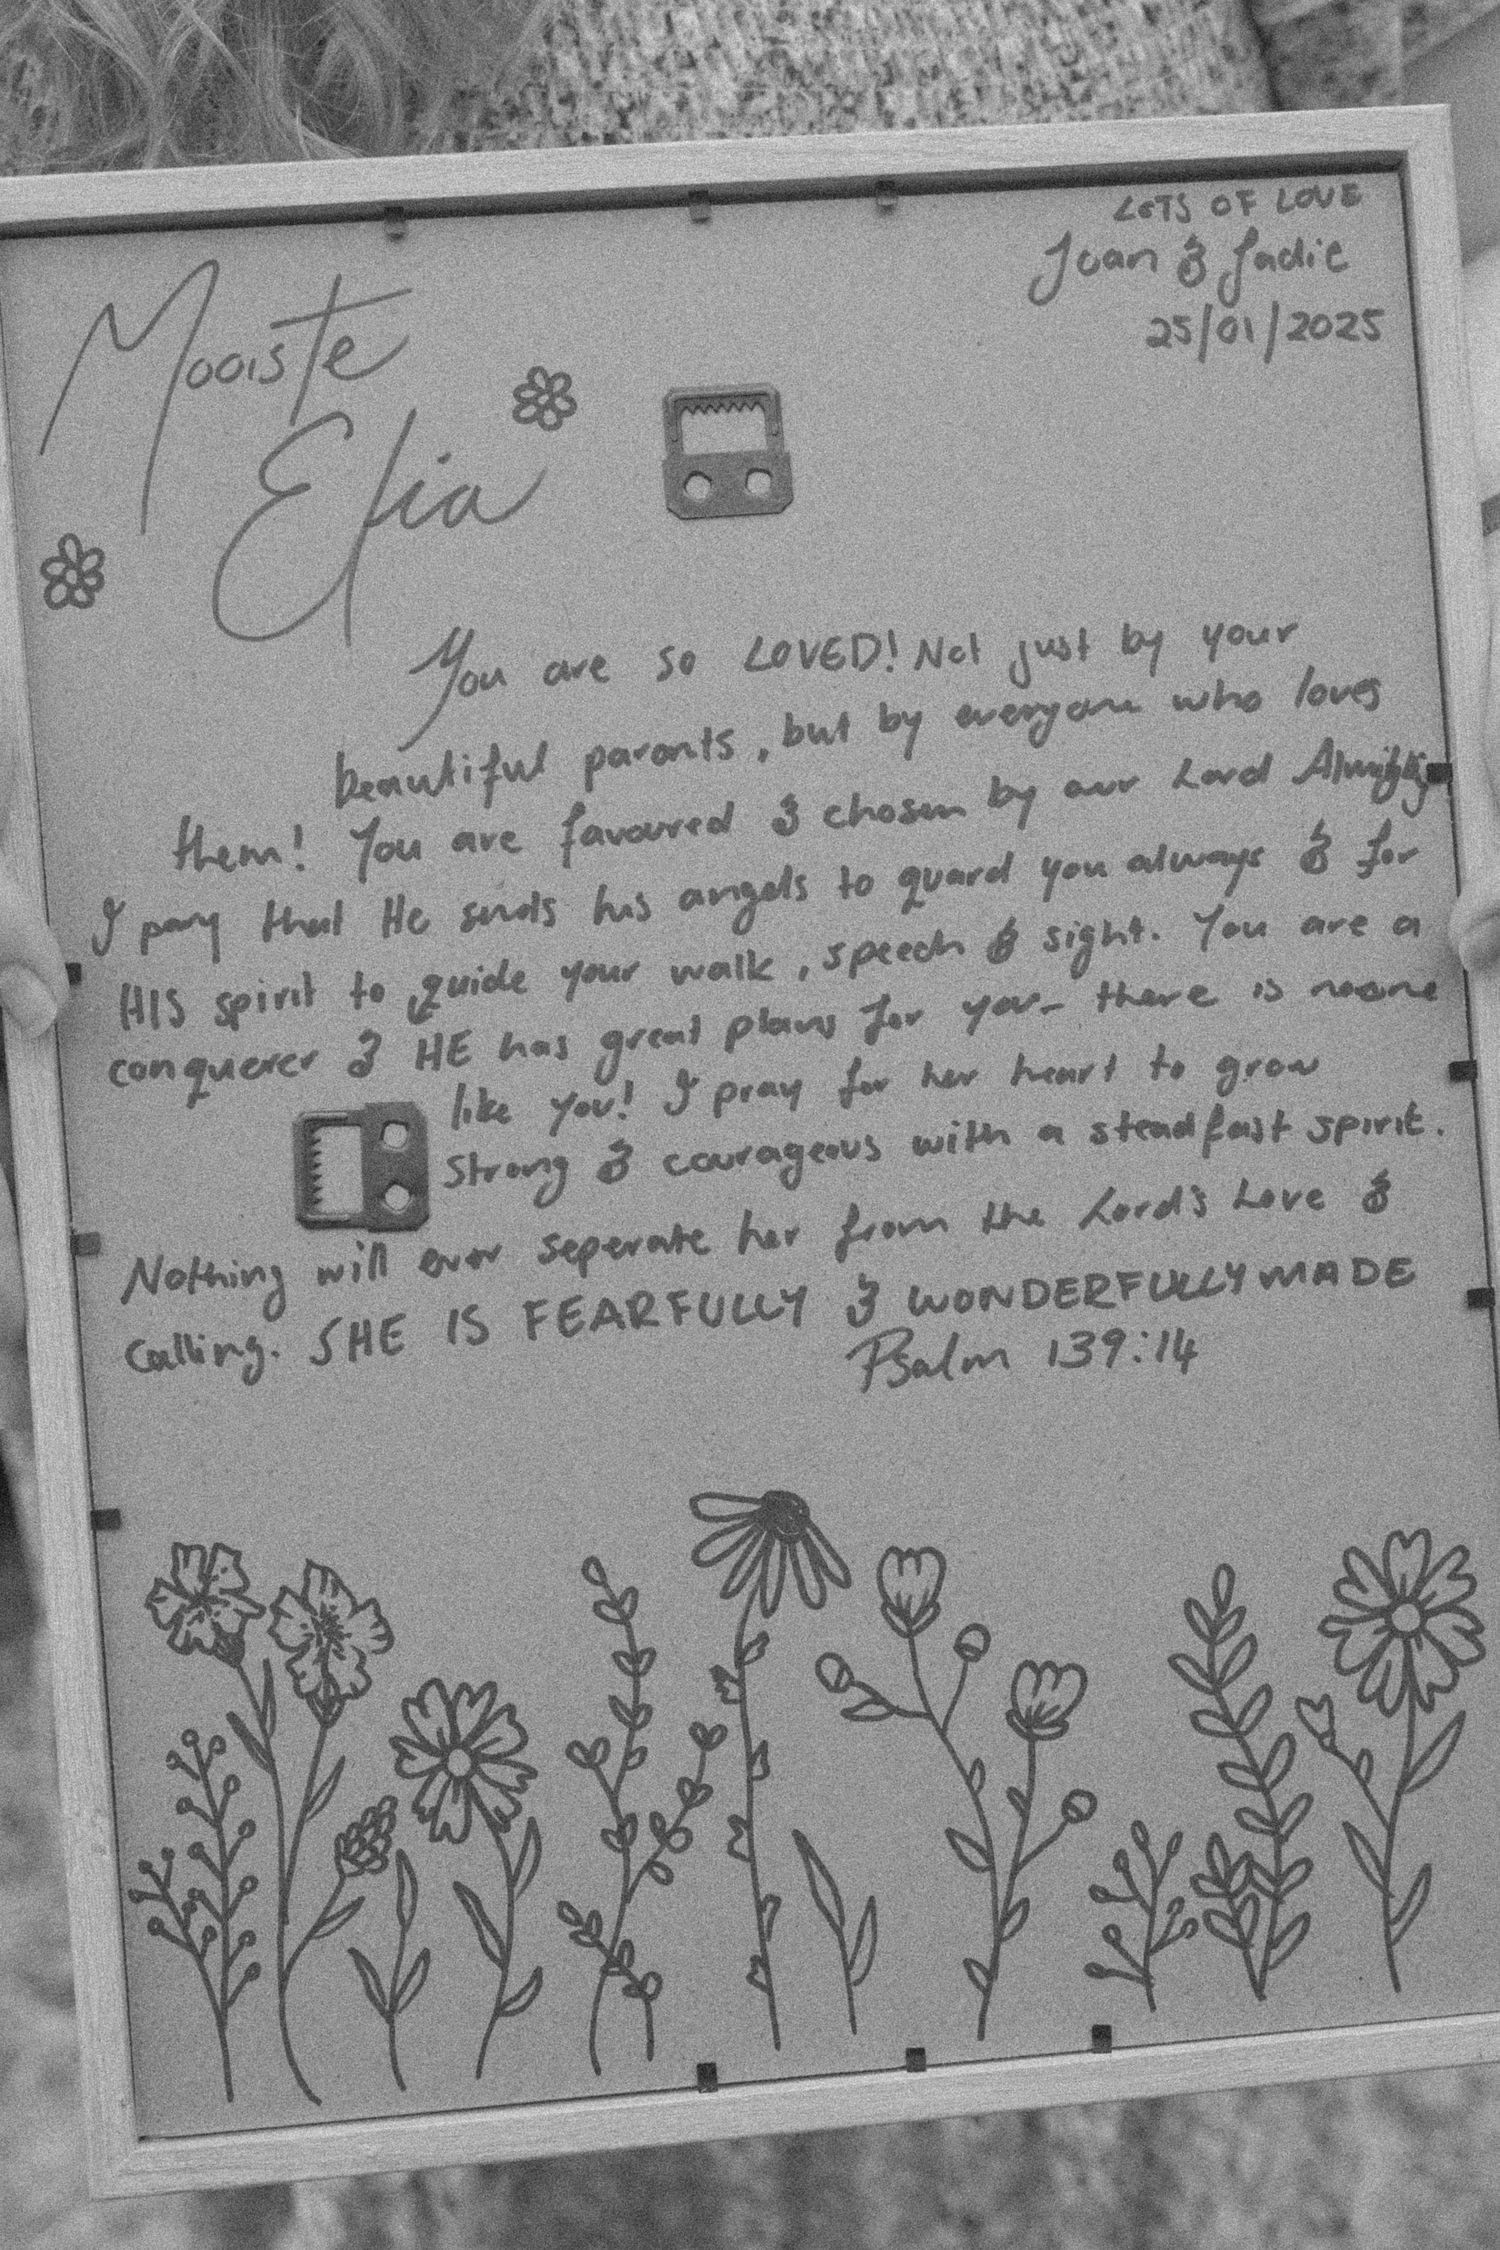 LOTS OF LOVE
Joan & Jadie
25/01/2025
Mooiste
Elia
You are so LOVED! Not just by your
beautiful parants, but by everyone who loves
them! You are favoured & chosen by our Lord Almighty
I pary that He sends his angels to guard you always & for
HIS spirit to guide your walk, speech & sight. You are a
conquerer & HE has great plans for you- there is noone
like you! I pray for her heart to grow
strong & courageous with a steadfast spirit.
Nothing will ever seperate her from the Lord's Love &
calling. SHE IS FEARFULLY & WONDERFULLY MADE
Psalm 139:14